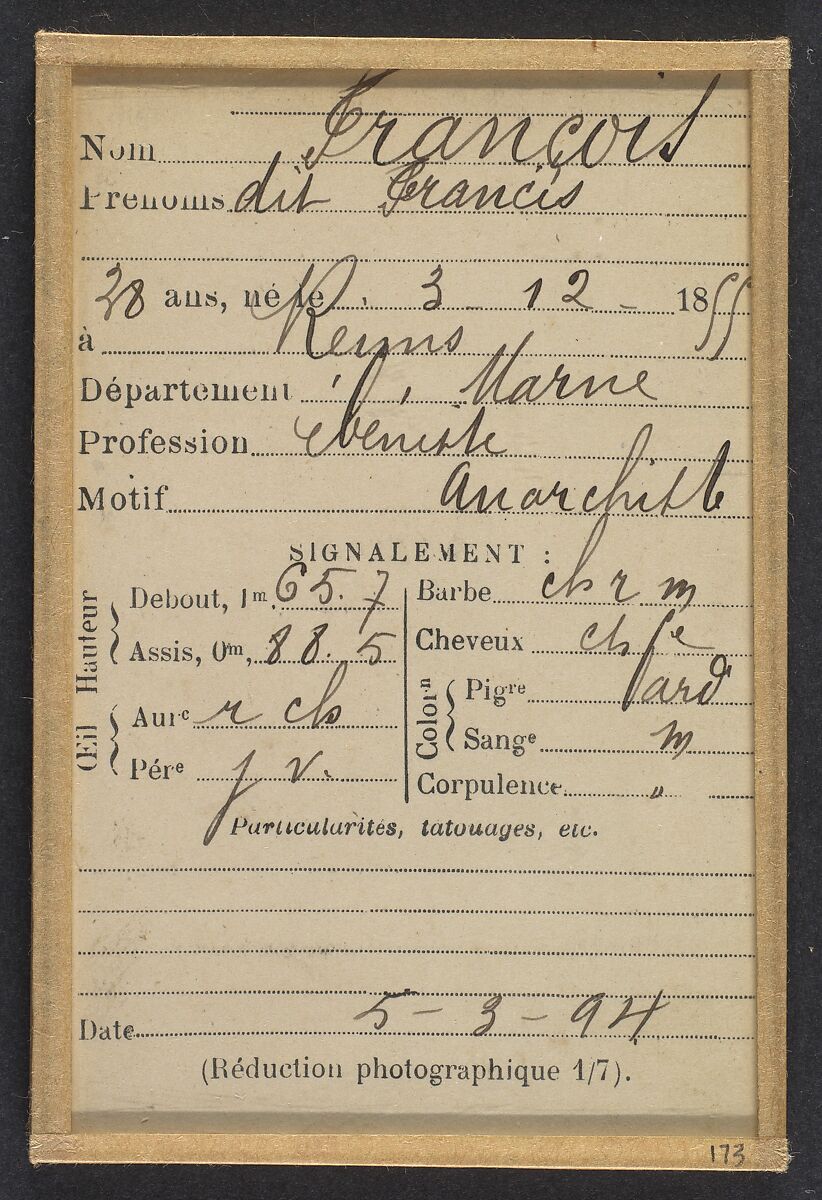 Nom François
Prénoms dit Francis
38 ans, né le 3 - 12 - 1855
à Reims
Département Marne
Profession ébéniste
Motif Anarchiste
SIGNALEMENT :
Hauteur
Debout, 1m, 65.7
Assis, 0m, 88.5
Œil
Aure r ch
Pére j v.
Barbe ch r m
Cheveux ch fe
Colorn
Pigre pard
Sange m
Corpulence "
Particularités, tatouages, etc.
Date 5 - 3 - 94
(Réduction photographique 1/7).
173